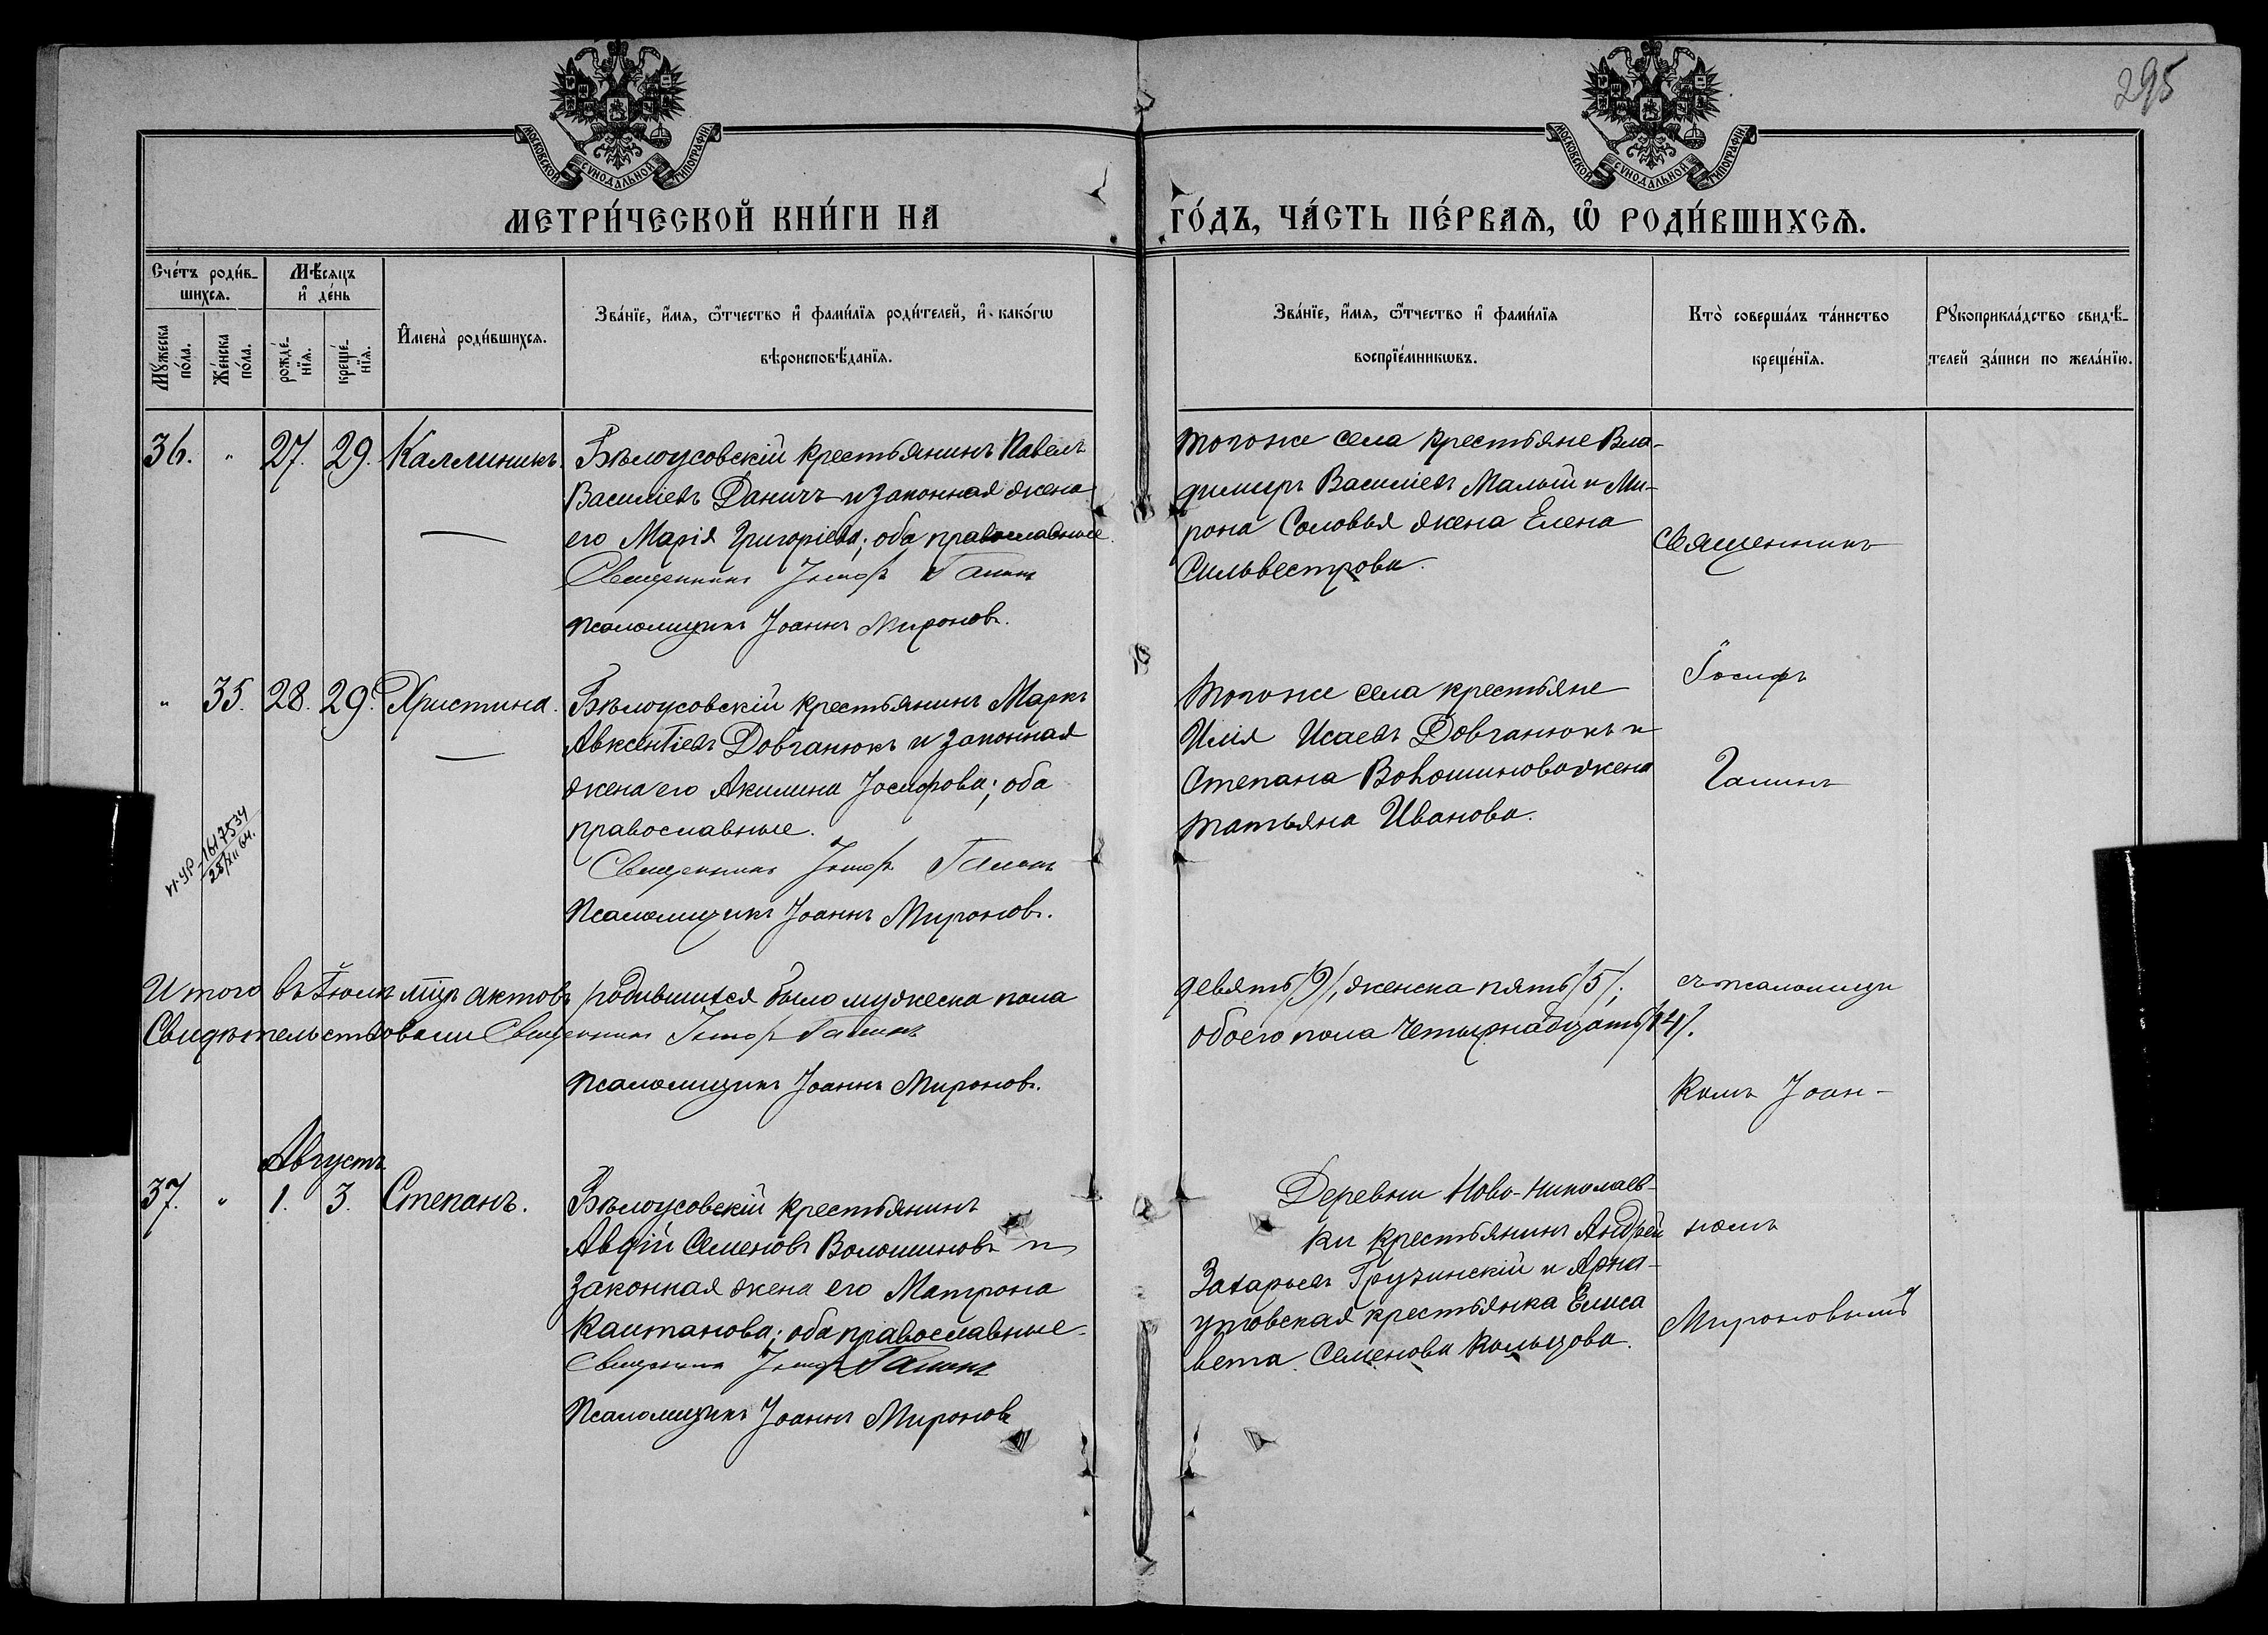 295
МОСКОВСКОЙ СѴНОДАЛЬНОЙ ТИПОГРАФІИ
МОСКОВСКОЙ СѴНОДАЛЬНОЙ ТИПОГРАФІИ
МЕТРИ́ЧЕСКОЙ КНИ́ГИ НА ГО́ДЪ, ЧА́СТЬ ПЕ́РВАѦ, Ѡ҆ РОДИ́ВШИХСѦ.
Сче́тъ роди́в-
шихсѧ.
Мꙋжеска по́ла.
Же́нска по́ла.
Мѣ́сѧцъ
и҆ де́нь
рожде́-
нїѧ.
креще́-
нїѧ.
И҆мена̀ роди́вшихсѧ.
Зва́нїе, и҆́мѧ, ѻ҆́тчество и҆ фами́лїѧ роди́телей, и҆ како́гѡ
вѣроисповѣ́данїѧ.
Зва́нїе, и҆́мѧ, ѻ҆́тчество и҆ фами́лїѧ
воспрїе́мникѡвъ.
Кто̀ соверша́лъ та́инство
креще́нїѧ.
Рꙋкоприкла́дство свидѣ́-
телей за́писи по жела́нїю.
36. " 27. 29. Каллиникъ. Бѣлоусовскій крестьянинъ Павелъ
Василіевъ Даничъ и законная жена
его Марія Григоріева; оба православные.
Священникъ Іосифъ Галинъ
Псаломщикъ Іоаннъ Мироновъ.
тогоже села крестьяне Вла-
димиръ Василіевъ Малый и Ми-
рона Соловья жена Елена
Сильвестрова.
Священникъ
" 35. 28. 29. Христина. Бѣлоусовскій крестьянинъ Маркъ
Авксентіевъ Довганюкъ и законная
жена его Акилина Іосифова; оба
православные.
Священникъ Іосифъ Галинъ
Псаломщикъ Іоаннъ Мироновъ.
1617534
28/XII 64.
тогоже села крестьяне
Илія Исаевъ Довганюкъ и
Степана Волошинова жена
татьяна Иванова.
Іосифъ
Галинъ
Итого въ Іюлѣ мцѣ актовъ родившихся было мужеска пола
девять /9/, женска пять /5/;
Свидѣтельствовали Священникъ Іосифъ Галинъ
обоего пола четырнадцать /14/.
Псаломщикъ Іоаннъ Мироновъ.
съ псаломщи
комъ Іоан-
Августъ
37. " 1. 3. Степанъ. Бѣлоусовскій крестьянинъ
Авдій Семеновъ Волошиновъ и
законная жена его Матрона
Каштанова; оба православные.
Священникъ Іосифъ Галинъ
Псаломщикъ Іоаннъ Мироновъ
Деревни Ново-Николаев-
ки крестьянинъ Андрей
Захарьевъ Грузинскій и Арна-
утовская крестьянка Елиса
вета Семенова Кольцова.
номъ
Мироновымъ